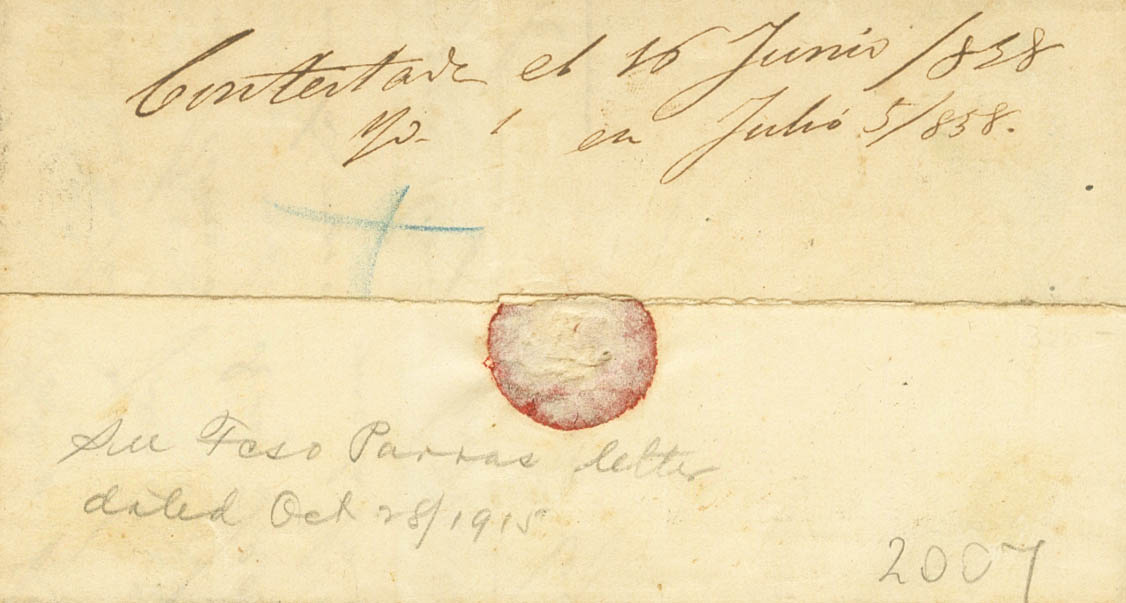 Contestada el 16 Junio /858
Yd. en Julió 5/858.
See Fcso Parras letter
dated Oct 28/1915
2007